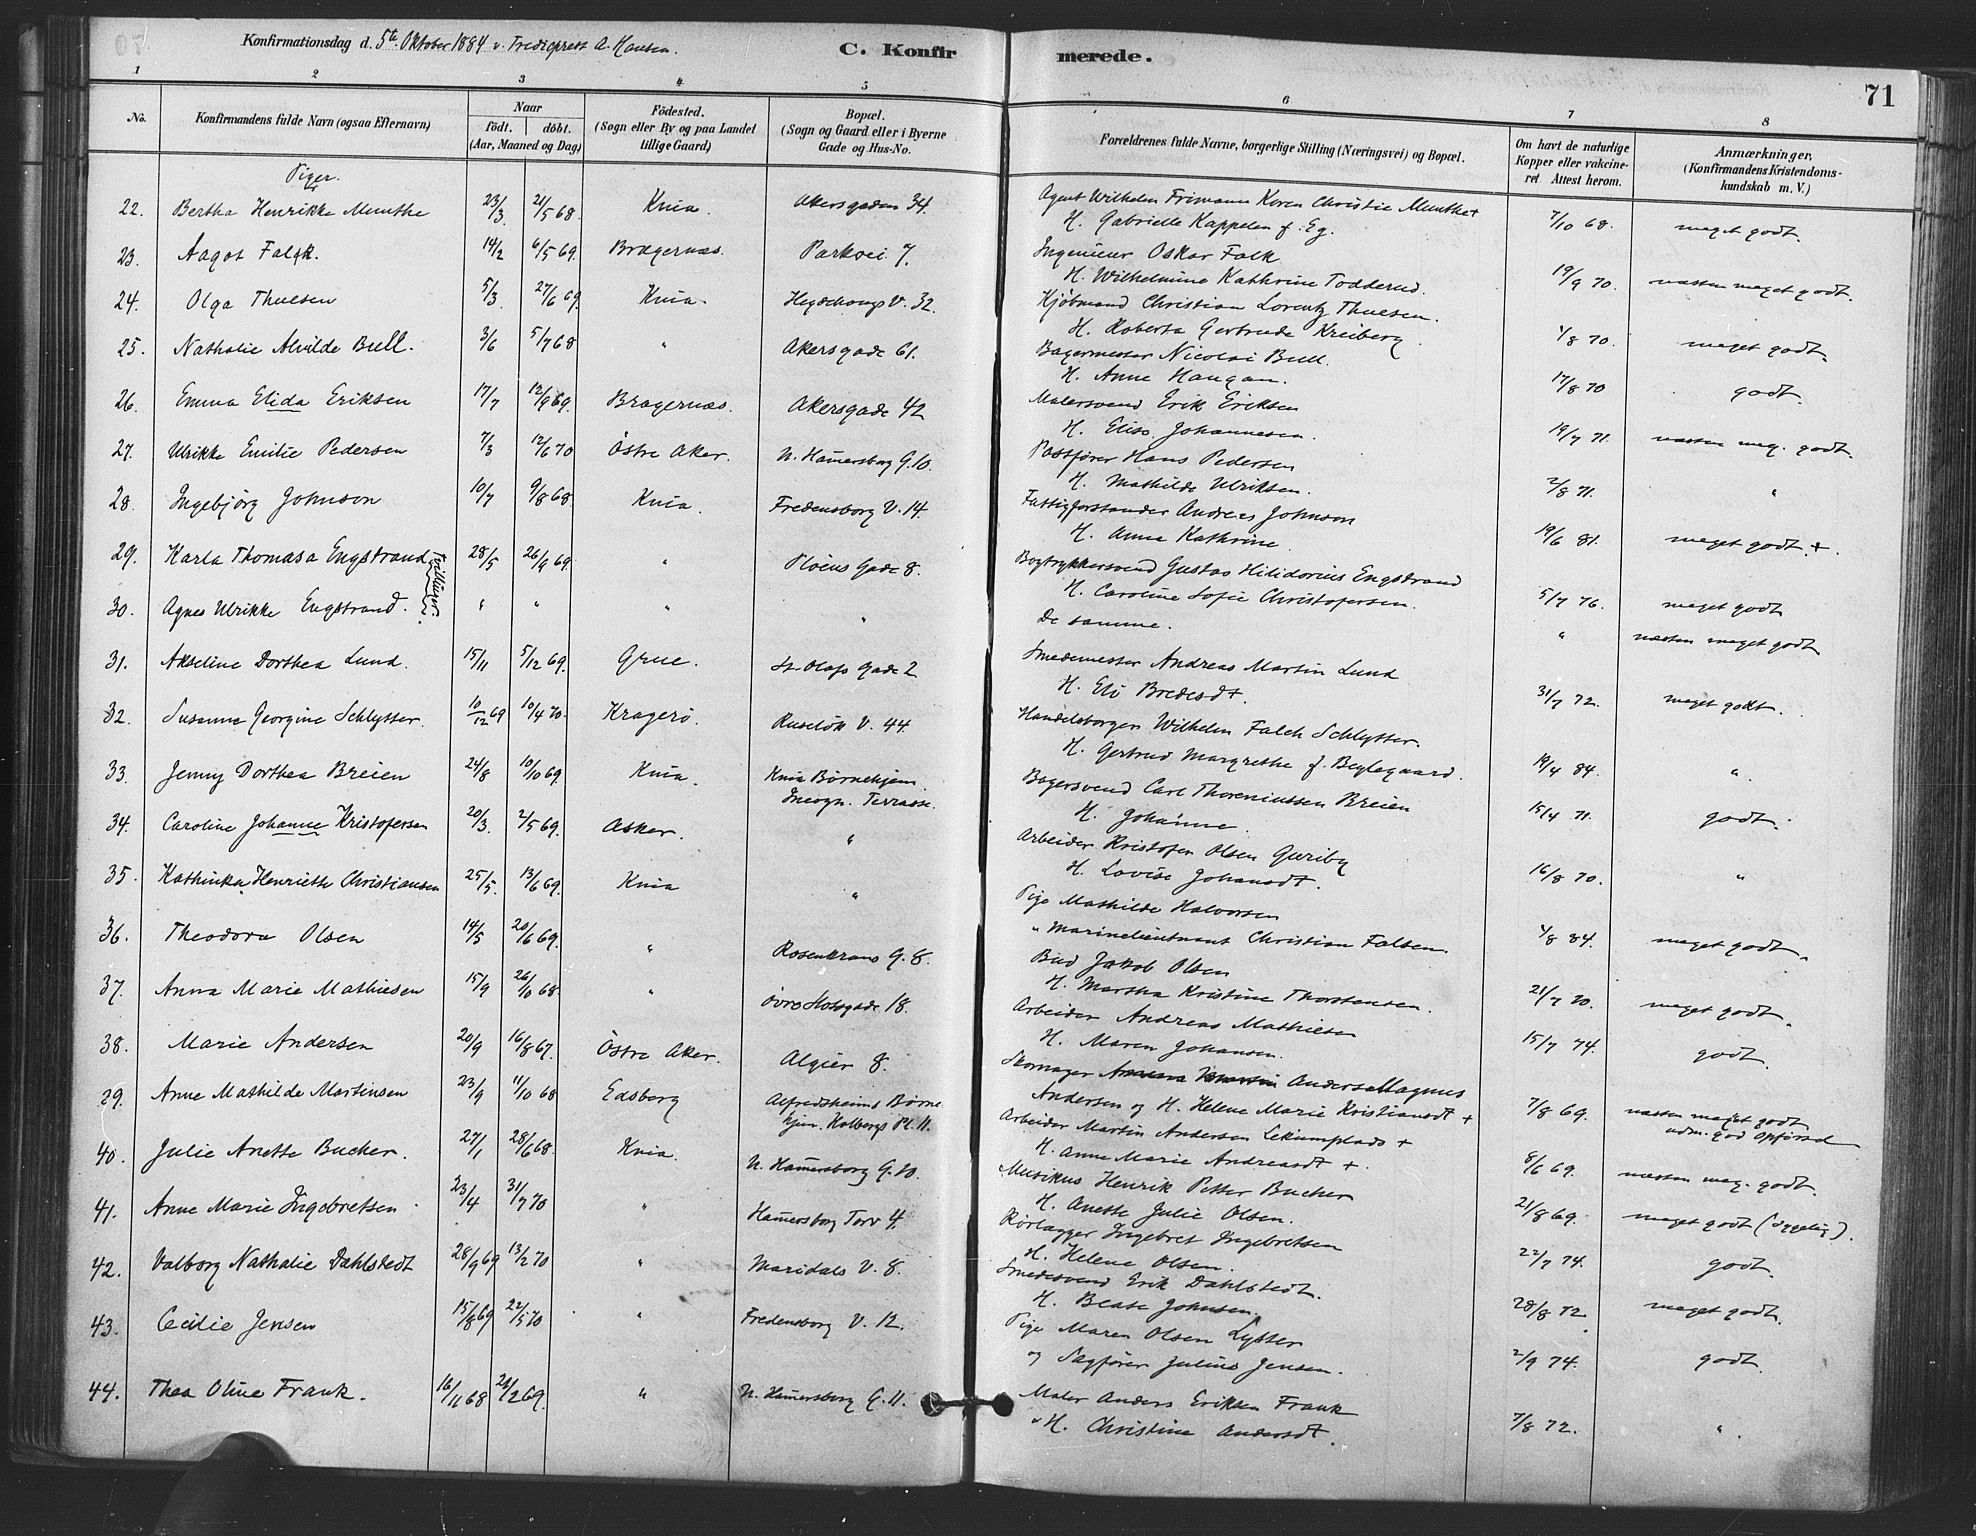 Konfirmationsdag d. 5te Oktober 1884 v. Trediepræst A. Hansen.
C. Konfirmerede.
71
1 2 3 4 5 6 7 8
No.
Konfirmandens fulde Navn (ogsaa Efternavn)
Naar
födt. döbt.
(Aar, Maaned og Dag)
Födested.
(Sogn eller By og paa Landet
tillige Gaard)
Bopæl.
(Sogn og Gaard eller i Byerne
Gade og Hus-No.
Forældrenes fulde Navne, borgerlige Stilling (Næringsvei) og Bopæl.
Om havt de naturlige
Kopper eller vakcine-
ret Attest herom.
Anmærkninger,
(Konfirmandens Kristendoms-
kundskab m. V.)
Piger.
22. Bertha Henrikke Munthe 23/3 21/5 68. Knia. Akersgaden 34. Agent Wilhelm Frimann Koren Christie Munthe +
H. Gabrielle Kappelen f. Eg. 7/10 68. meget godt.
23. Aagot Falck. 14/2 6/5 69. Bragernæs. Parkvei 7. Ingenieur Oskar Falk
H. Wilhelmine Kathrine Todderud. 19/9 70. næsten meget godt.
24. Olga Thuesen 5/3. 27/6 69. Knia. Hegdehougs V. 32. Kjøbmand Christian Lorentz Thuesen.
H. Roberta Gertrude Kreiberg. 1/8 70. meget godt.
25. Nathalie Alvilde Bull. 3/6 5/7 68 " Akersgade 61. Bagermester Nicolai Bull.
H. Anne Haugan. 17/8 70 godt.
26. Emma Elida Eriksen 17/7 12/9 69. Bragernæs. Akersgade 42 Malersvend Erik Eriksen
H. Elise Johannesen. 19/7 71. næsten meg. godt.
27. Ulrikke Emilie Pedersen 7/3 12/6 70 Östre Aker. N. Hamersborg G. 10. Postfører Hans Pedersen
H. Mathilde Ulriksen. 2/8 71. "
28. Ingebjörg Johnson 10/7 9/8 68. Knia. Fredensborg V. 14. Fattigforstander Andreas Johnson
H. Anna Kathrine. 19/6 81. meget godt. +.
29. Karla Thomasa Engstrand 28/5 26/9 69. " Pløens Gade 8. Bogtrykkersvend Gustav Hilidorius Engstrand
H. Caroline Sofie Christofersen. 5/7 76. meget godt
tvillinger.
30. Agnes Ulrikke Engstrand. " " " " De samme. " næsten meget godt
31. Akseline Dorthea Lund. 15/11 5/12 69. Grue. St. Olafs Gade 2 Smedemester Andreas Martin Lund
H. Eli Bredesdt. 31/7 72. meget godt.
32. Susanne Georgine Schlytter. 10/12 69 10/4 70. Kragerö. Ruselök V. 44. Handelsborger Wilhelm Falch Schlytter.
H. Gertrud Margrethe f. Beylegaard. 19/4 84. "
33. Jenny Dorthea Breien 24/8 10/10 69. Knia. Knia Børnehjem Bagersvend Carl Thoreniussen Breien
Incogn. Terrasse. H. Johanne. 15/4 71. godt.
34. Caroline Johanne Kristofersen 20/3. 2/5 69. Asker. " Arbeider Kristofer Olsen Guriby
H. Lovise Johansdt. 16/8 70. "
35. Kathinka Henriette Christiansen 25/5. 13/6 69. Knia " Pige Mathilde Halvorsen
" Marinelieutnant Christian Falsen 4/8 84. meget godt.
36. Theodora Olsen 14/5 20/6 69. " Rosenkrans G. 8. Bud Jakob Olsen
H. Martha Kristine Thorstensen. 21/7 70. meget godt.
37. Anna Marie Mathiesen 15/9 26/10 68. " övre Slotsgade 18. Arbeider Andreas Mathiesen
H. Maren Johansen. 15/7 74. godt.
38. Marie Andersen 20/9 16/8 67. Östre Aker. Algier 8. Skomager Anders Magnus
Andersen og H. Helene Marie Kristiansdt + 7/8 69. næsten meget godt
udm. god Opførsel
29. Anne Mathilde Martinsen 23/9 11/10 68 Edsberg Alfredsheims Børne Arbeider Martin Andersen Lekumplads +
hjem. Holbergs Pl. 11. H. Anne Marie Andreasdt +. 8/6 69. næsten meg. godt.
40. Julie Anette Bucher. 27/1 28/6 68. Knia. N. Hamersborg G. 10. Musikus Henrik Petter Bucher
H. Anette Julie Olsen. 21/8 69. meget godt (sygelig).
41. Anne Marie Ingebretsen 23/4 31/7 70 " Hamersborg Torv 4. Rörlægger Ingebret Ingebretsen
H. Helene Olsen. 22/7 74. godt.
42. Valborg Nathalie Dahlstedt 28/9 69 13/2 70 " Maridals V. 8. Smedesvend Erik Dahlstedt.
H. Beate Johnsen. 28/8 72 meget godt.
43. Cecilie Jensen 15/8 69 22/5 70 " Fredensborg V. 12. Pige Maren Olsen Lytter
og Sagfører Julius Jensen. 2/9 74. godt.
44. Thea Oline Frank. 16/11 68 21/2 69. " N. Hamersborg G. 11. Maler Anders Eriksen Frank
" H. Christine Andersdt. 7/8 72. "